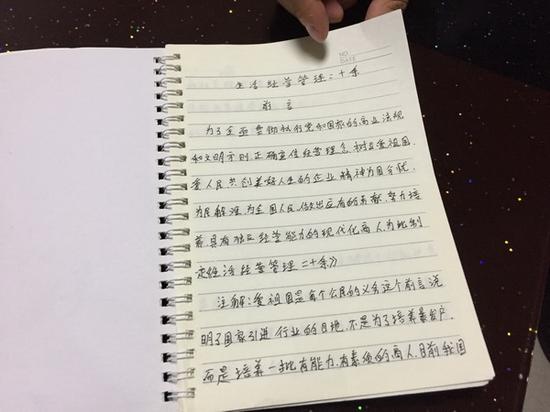 NO.
DATE
生活经营管理二十条
前言
为了全面贯彻执行党和国家的商业法规
和文明守则正确宣传经营理念,树立爱祖国.
爱人民共创美好人生的企业精神为国分忧.
为民解难为全国人民做出应有的贡献,努力培
养具有独立经营能力的现代化商人为此制
定《生活经营管理二十条》
注解:爱祖国是每个公民的义务这个前言说
明了国家引进行业的目地.不是为了培养暴发户.
而是培养一批有能力.有素质的商人.目前我国